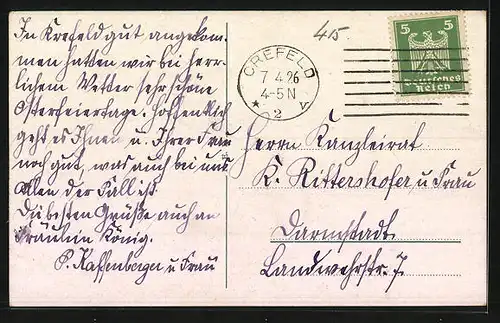 In Krefeld gut angekom-
men hatten wir bei herr-
lichem Wetter sehr schöne
Osterfeiertage. Hoffentlich
geht es Ihnen u. Ihrer Frau
noch gut, was auch bei uns
allen der Fall ist.
Die besten Grüße auch an
Fräulein König.
P. Raffenberger u Frau
415
CREFELD
7 4.26
4-5 N
* 2 v
5 5
Deutsches
Reich
Herrn Kanzleirat
K. Rittershofer u Frau
Darmstadt
Landwehrstr. 7.